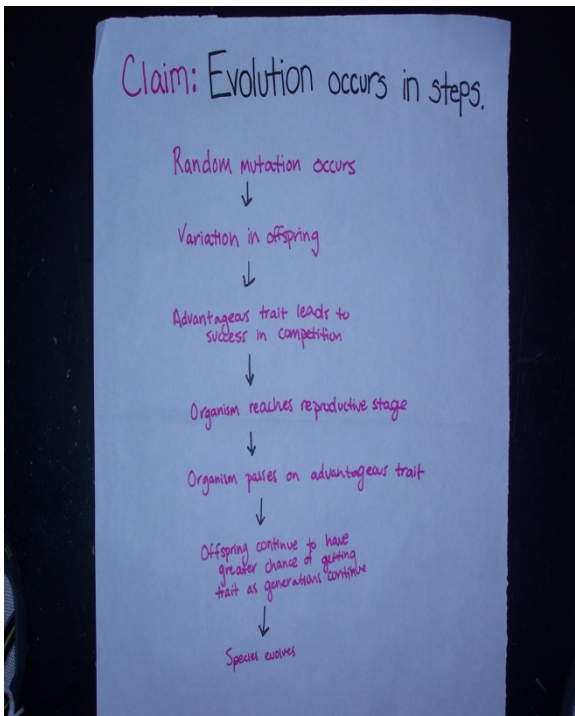 Claim: Evolution occurs in steps.
Random mutation occurs
Variation in offspring
Advantageous trait leads to
success in competition
Organism reaches reproductive stage
Organism passes on advantageous trait
Offspring continue to have
greater chance of getting
trait as generations continue
Species evolves